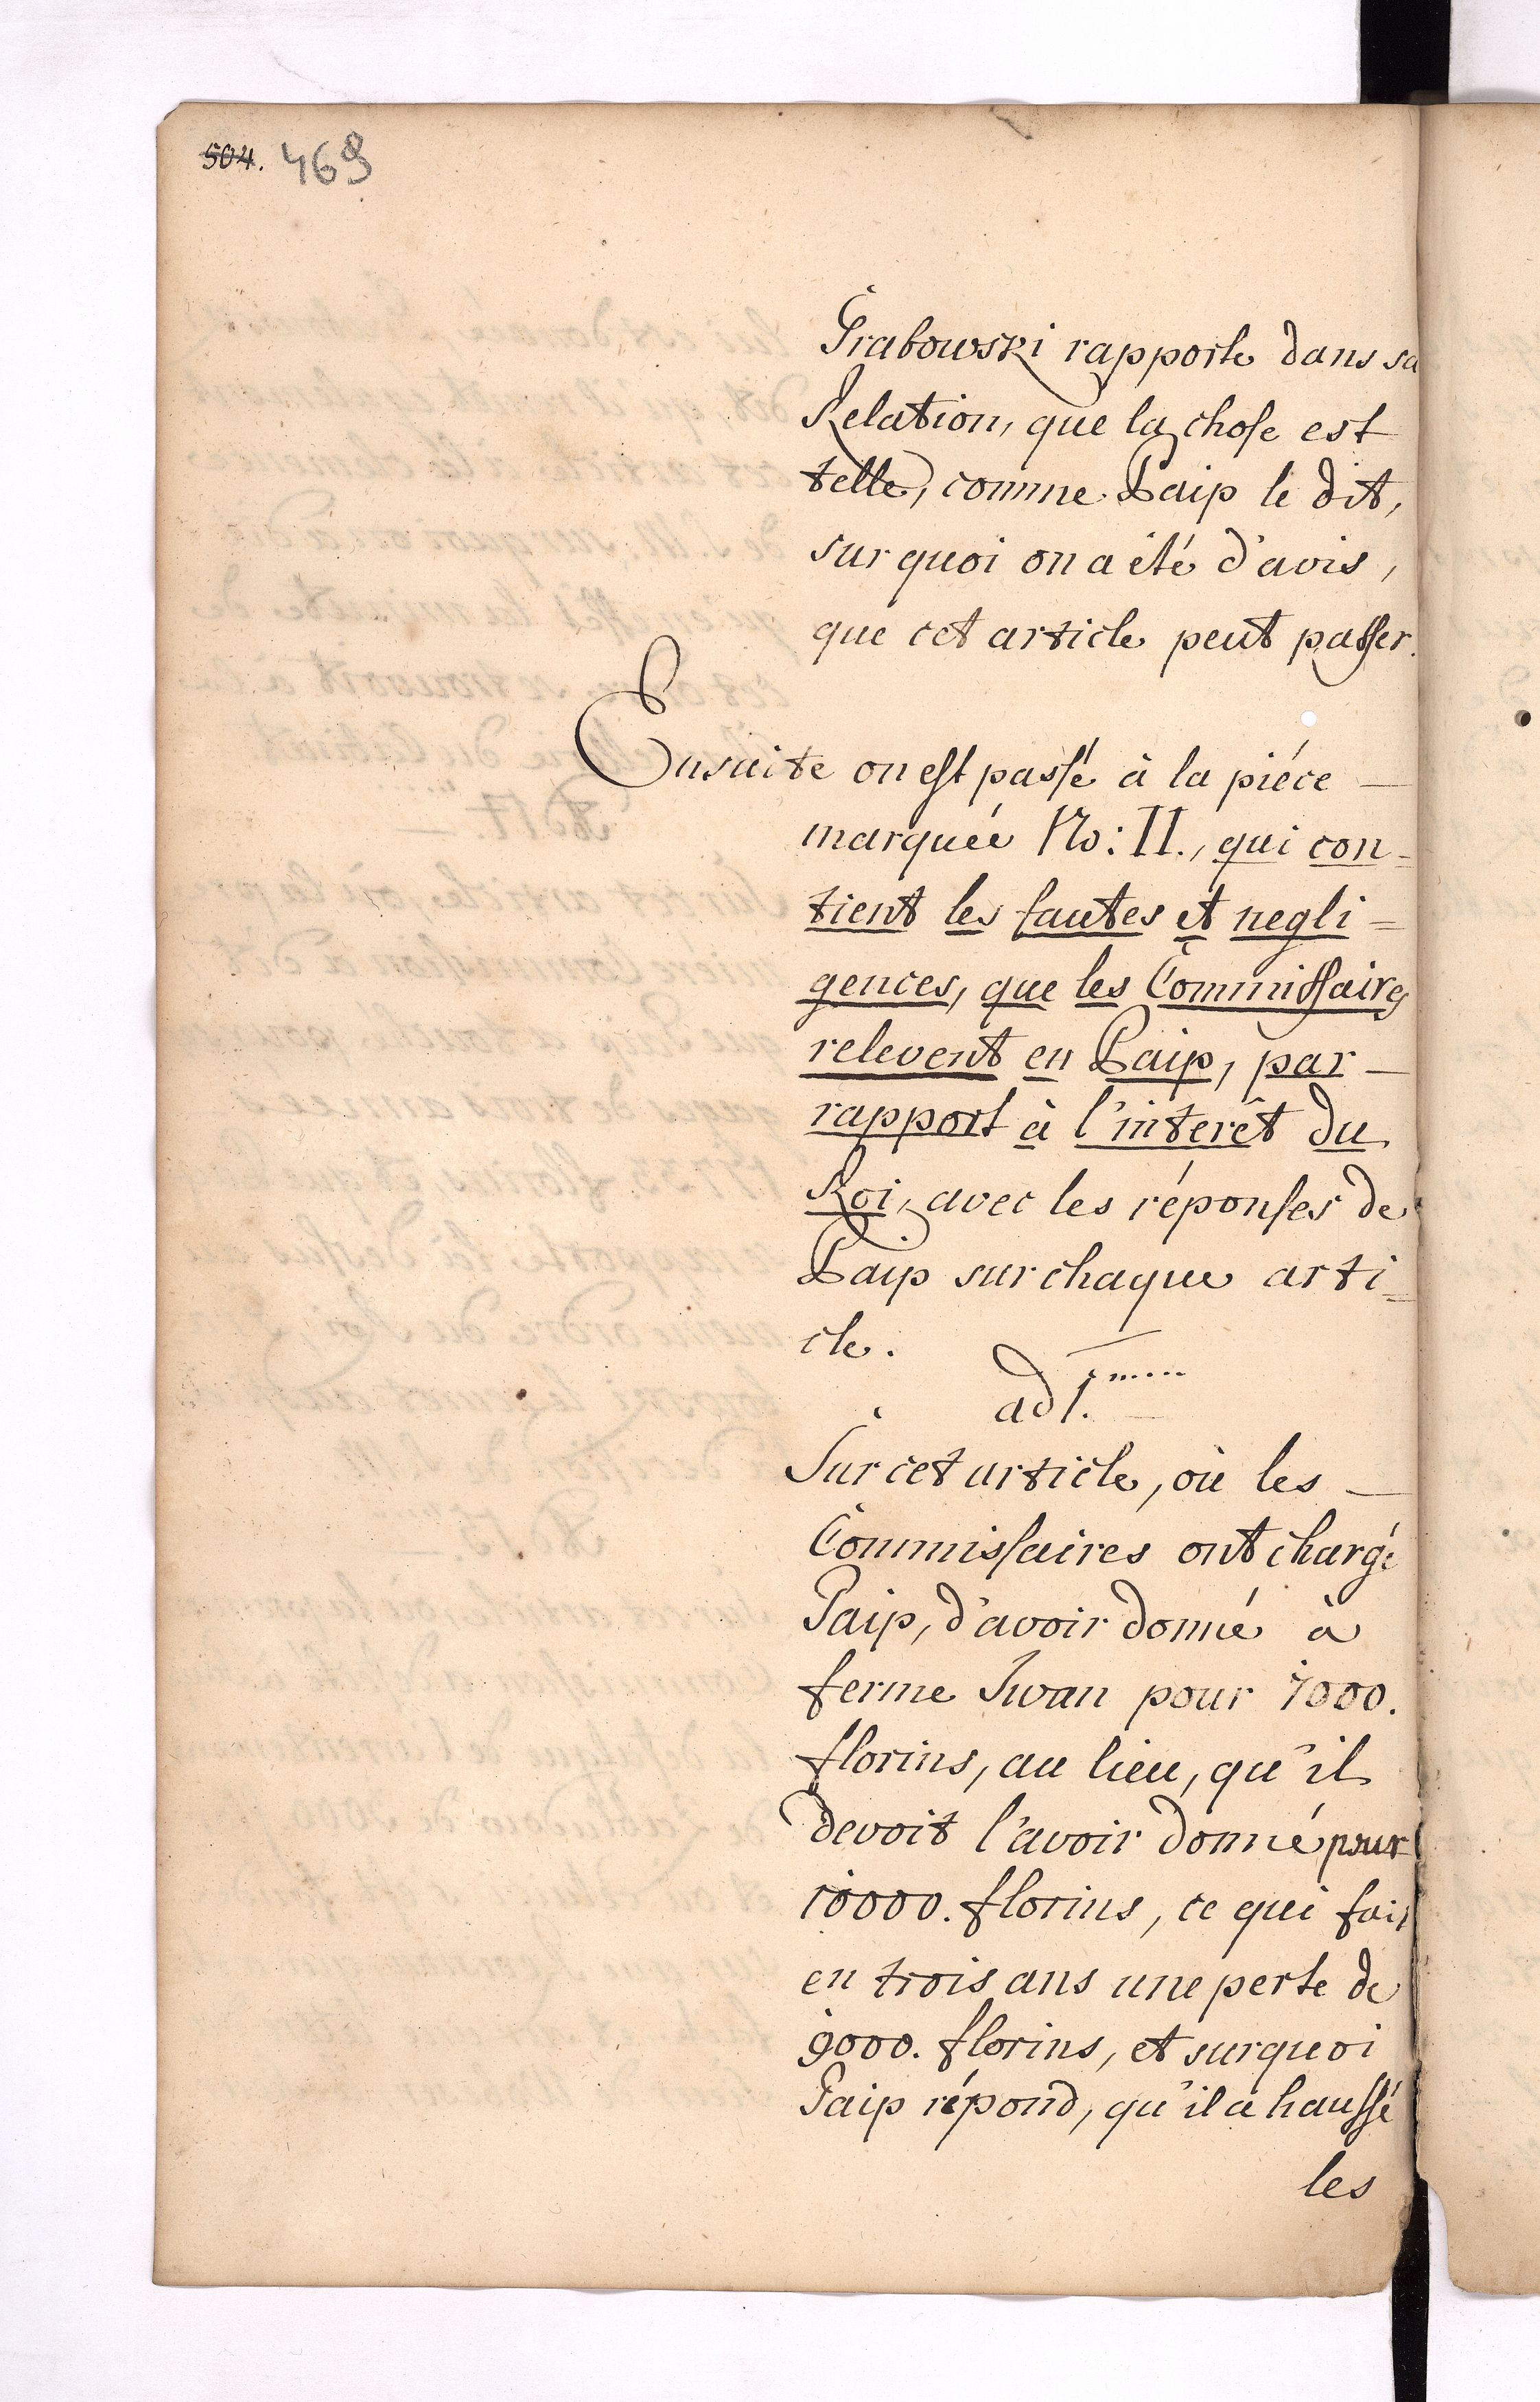 504. 469
Grabowski rapporte dans sa
Relation, que la chose est
telle, comme Paip le dit,
sur quoi on a été d'avis,
que cet article peut passer.
Ensuite on est passé à la piéce
marquée No: II., qui con-
tient les fautes et negli=
gences, que les Commissaires
relevent en Paip, par
rapport à l'interêt du
Roi, avec les réponses de
Paip sur chaque arti=
cle.
ad 1.
Sur cet article, où les
Commissaires ont chargé
Paip, d'avoir donné à
ferme Iwan pour 7000.
florins, au lieu, qu'il
devoit l'avoir donné pour
10000. florins, ce qui fait
en trois ans une perte de
9000. florins, et surquoi
Paip répond, qu'il a haussé
les